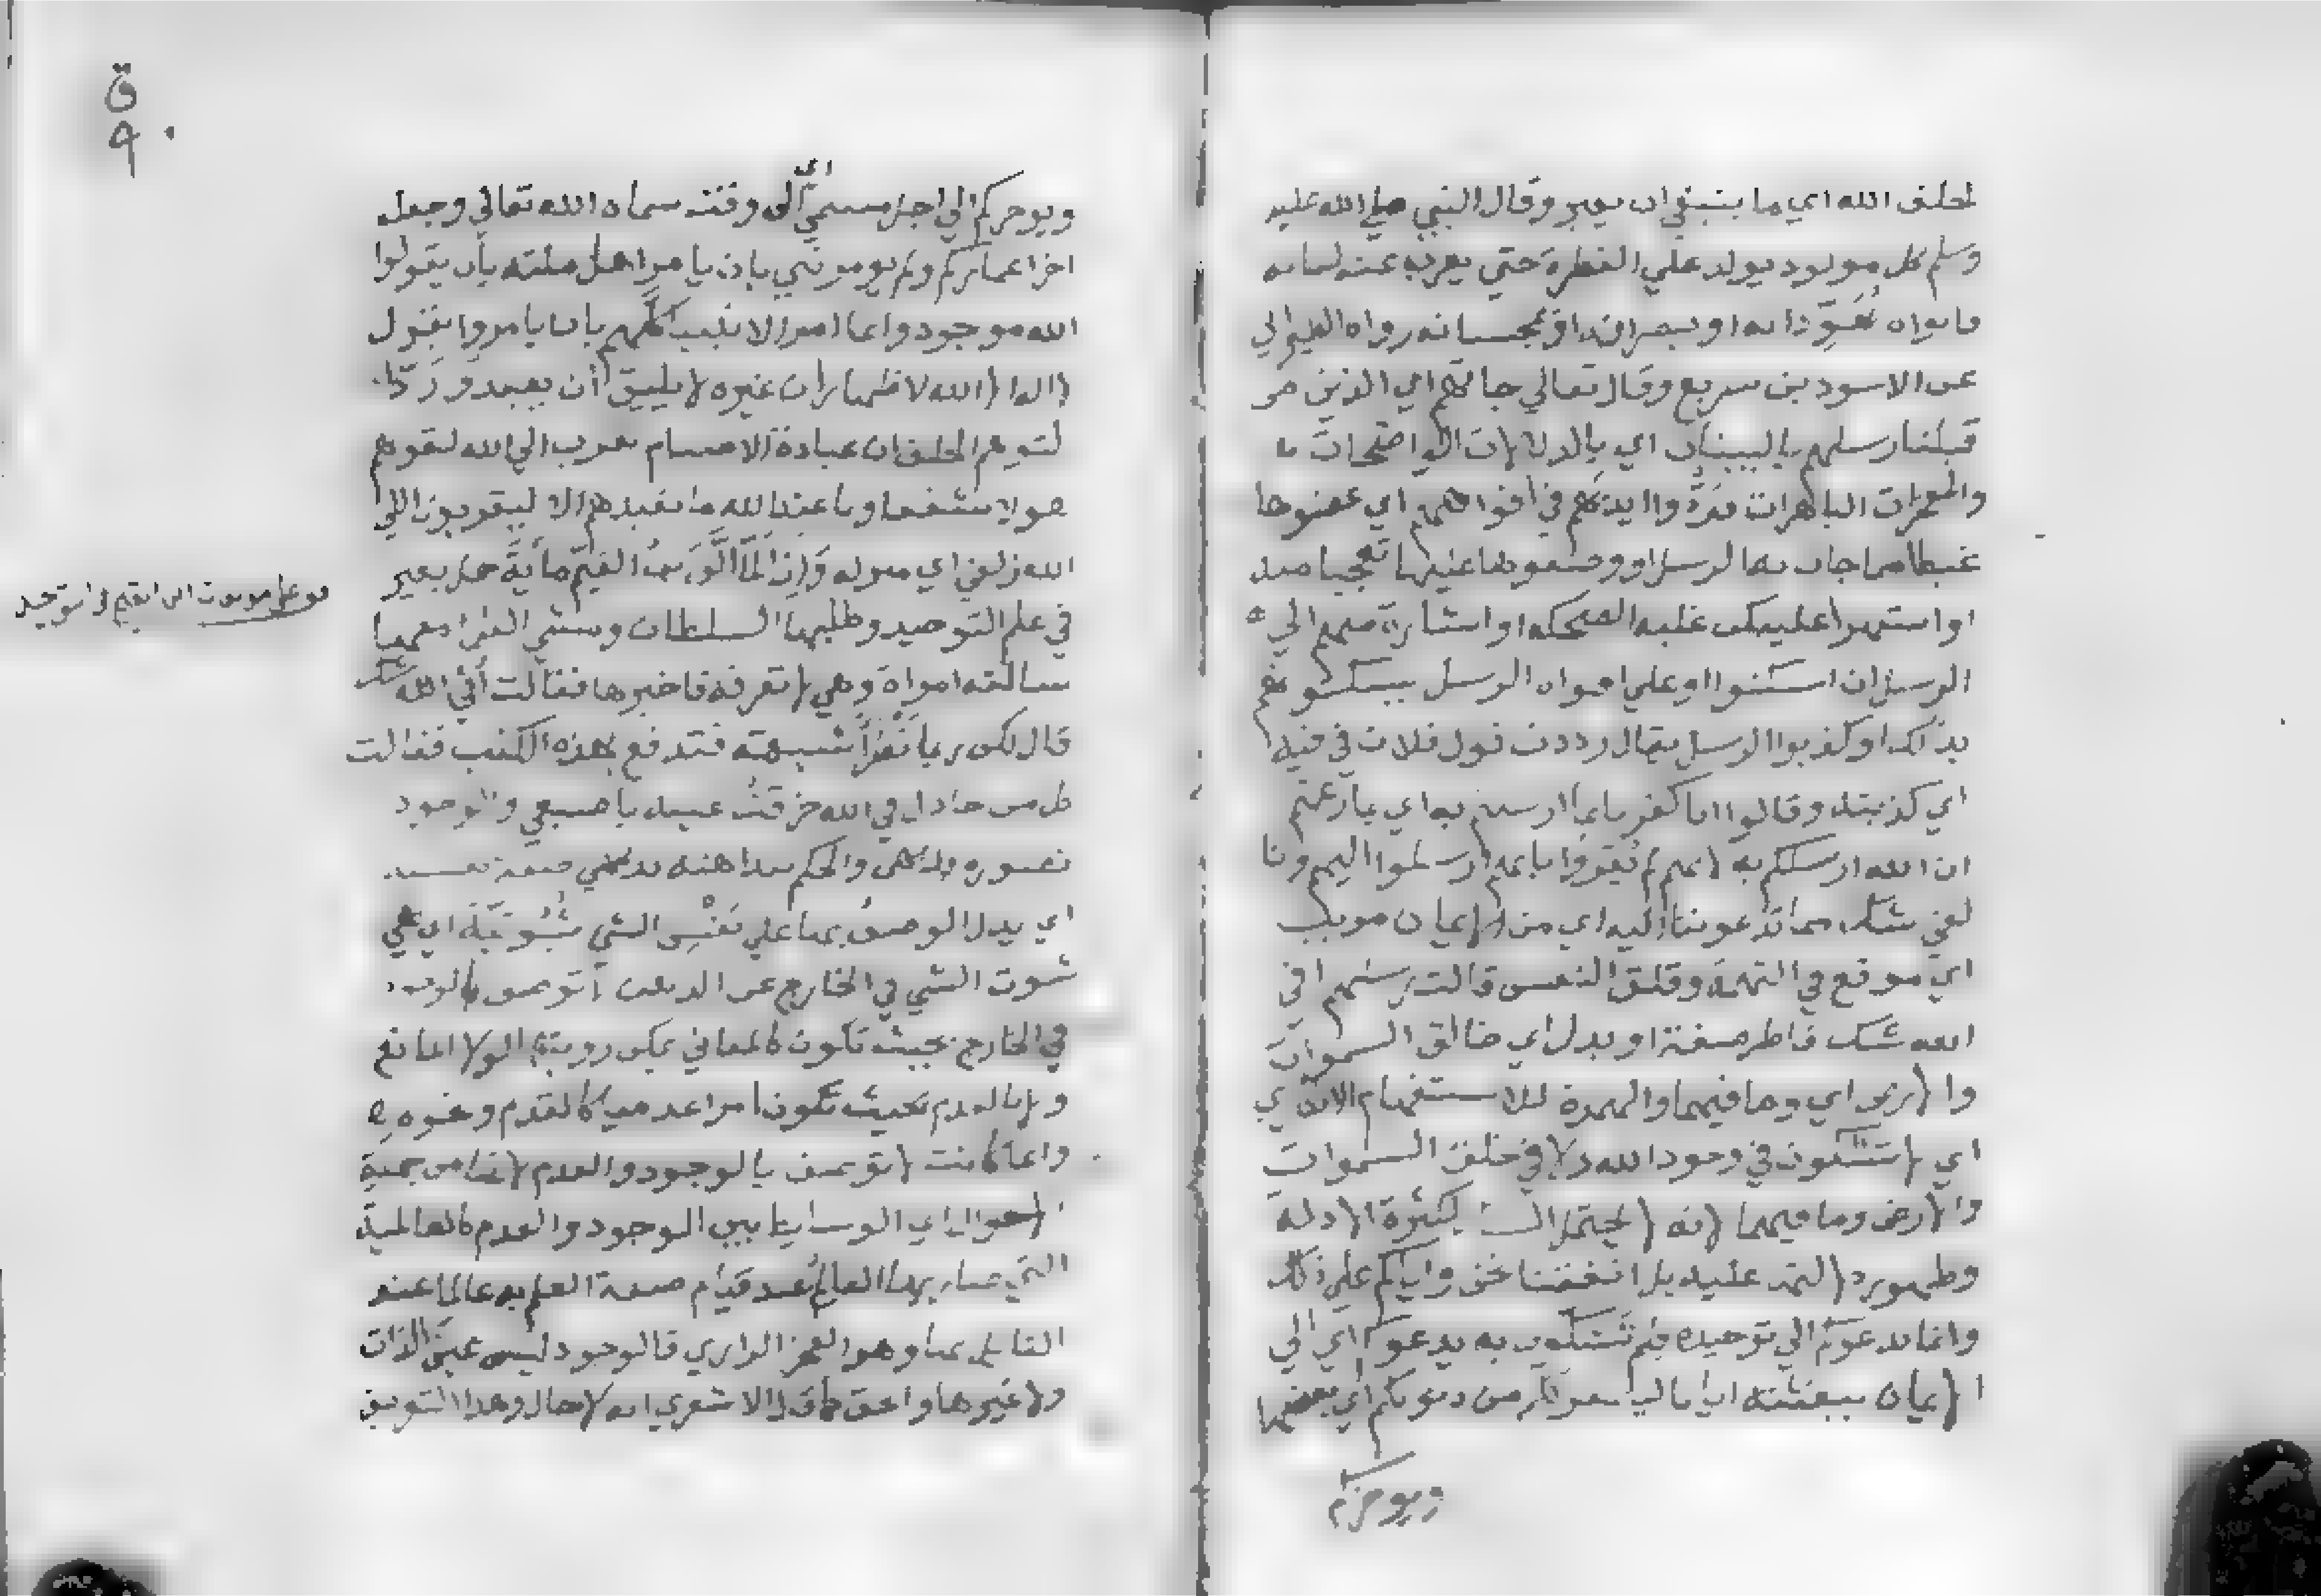 لخلق الله اي ما ينبغي ان يغير وقال النبي صلي الله عليه
وسلم كل مولود يولد علي الفطرة حتي يعرب عنه لسانه
فابواه يهودانه او ينصرانه او يمجسانه رواه الطبراني
عن الاسود بن سريع وقال تعالي جاتهم اي الذين من
قبلنا رسلهم بالبينات اي بالدلالات الواضحات
والمعجزات الباهرات فردوا ايديهم في افواههم اي عضوها
غيظا مما جات به الرسل او وضعوها عليها تعجبا منه
او استهزا عليه كمن غلبه الضحك او اشارة منهم الي
الرسل ان اسكتوا او علي افواه الرسل يسكتونهم
بذلك او كذبوا الرسل يقال رددت قول فلان في فيه
اي كذبته وقالوا انا كفرنا بما ارسلتم به اي بما زعمتم
ان الله ارسلكم به لانهم لم يقروا بانهم ارسلوا اليهم وانا
لفي شك مما تدعوننا اليه اي من الايمان مريب
اي موقع في التهمة وقلق النفس قالت رسلهم افي
الله شك فاطر صفة او بدل اي خالق السموات
والارض اي وما فيهما والهمزة للاستفهام الانكاري
اي لا تشكون في وجود الله ولا في خلق السموات
والارض وما فيهما لانه لا يحتمل الشك لكثرة الادلة
وظهور دلالتها عليه بل اتفقنا نحن واياكم علي ذلك
وانما ندعوكم الي توحيده فلم تشكون به يدعوكم اي الي
الايمان ببعثته ايانا ليغفر لكم من ذنوبكم اي بعضها
ويوخركم
ق
٩٠
ويوخركم الي اجل مسمي اي الي وقت سماه الله تعالي وجعله
اخر اعماركم ولم يومر نبي بان يامر اهل ملته بان يقولوا
الله موجود وانما امر الانبيا كلهم بان يامروا بقول
لا اله الا الله لاظهار ان غيره لا يليق أن يعبد وردّا
لتوهم الخلق ان عبادة الاصنام تقرب الي الله لقولهم
هولا شفعاونا عند الله ما نعبدهم الا ليقربونا الي
الله زلفي اي منزلة
في علم التوحيد وطلبها السلطان ومشي الفقرا معها
سالته امراة وهي لا تعرفه فاخبرها فقالت أفي الله شك
قال لكن ربما تطرأ شبهة فتدفع بهذه الكتب فقالت
كل من جادل في الله خزقت عينه باصبعي والوجود
تصوره بديهي والحكم ببداهته بديهي صفة نفسية
اي يدل الوصف بها علي نفس الشي ثبوتية اي هي
ثبوت الشي في الخارج عن الذهن لا توصف بالوجود
في الخارج بحيث تكون كالمعاني يمكن رويتها لولا المانع
ولا بالعدم بحيث تكون امرا عدميا كالقدم ونحوه
وانما كانت لا توصف بالوجود والعدم لانها من جملة
الاحوال اي الوسايط بين الوجود والعدم كالعالمية
التي صار بها العالم بعد قيام صفة العلم به عالما عند
القايل بها وهو الفخر الرازي فالوجود ليس عين الذات
ولا غيرها والحق كما قال الاشعري انه لا حال وهذا التعريف